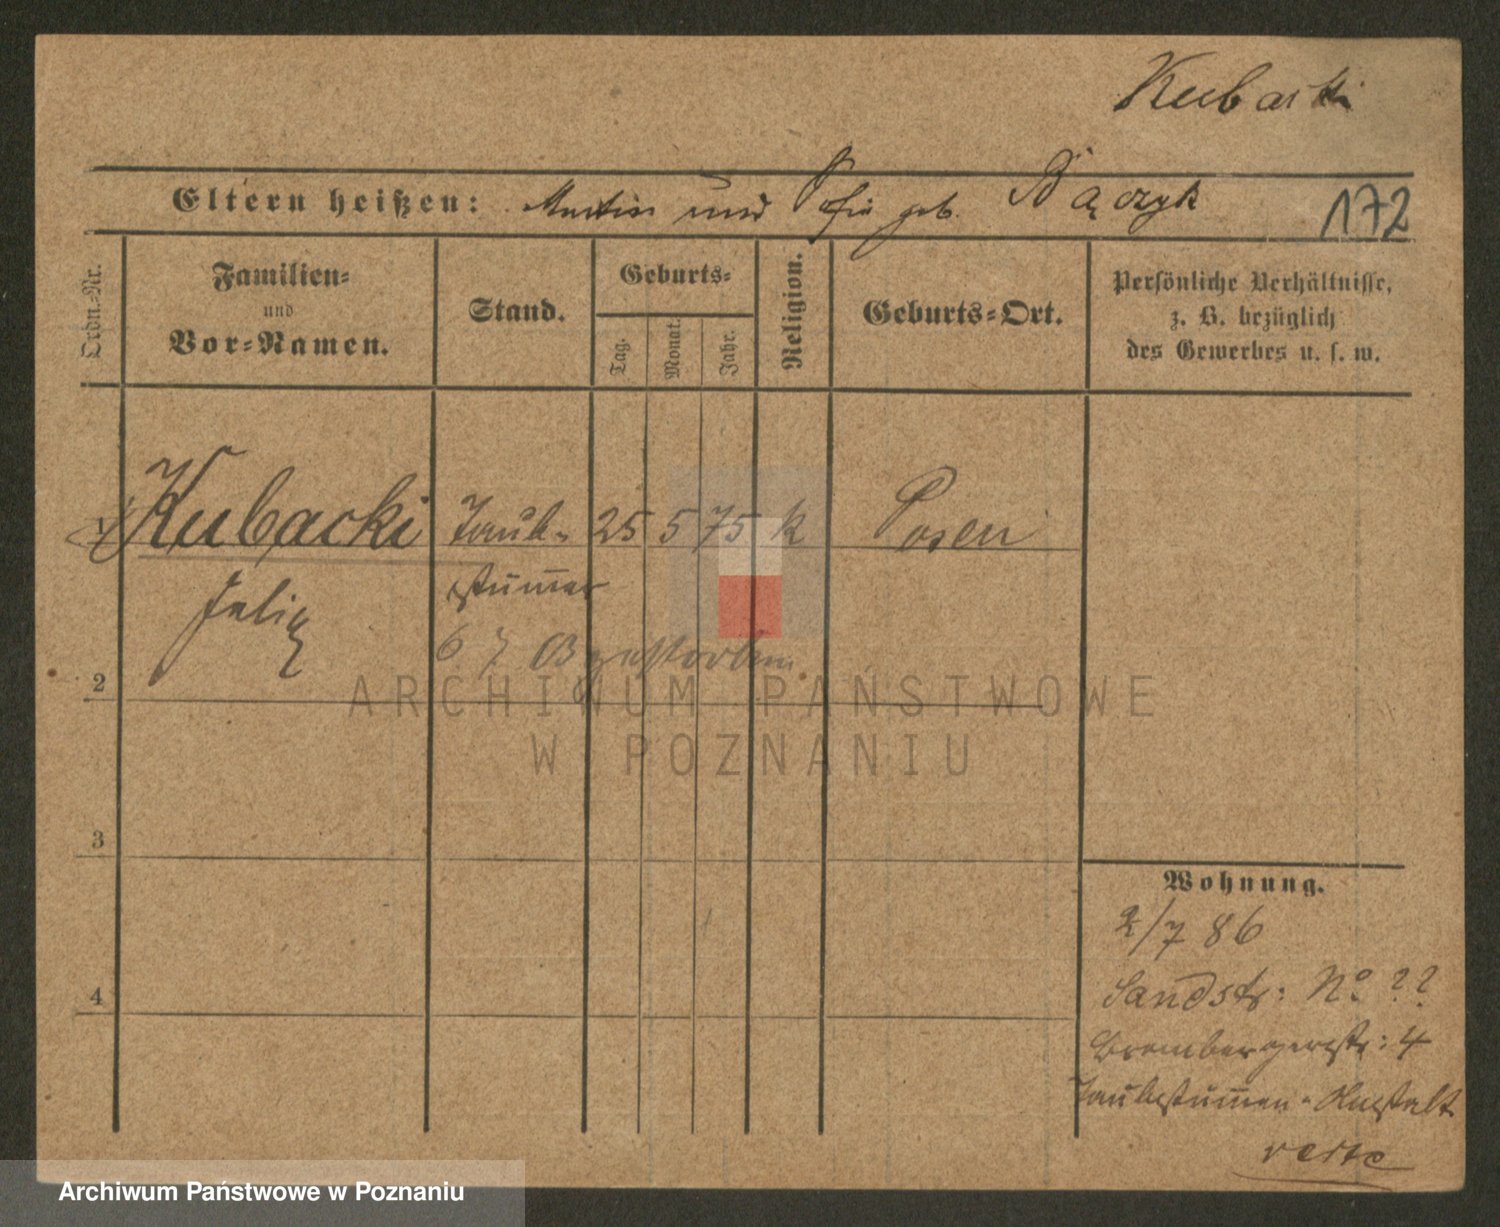 Kubacki
Eltern heißen: Martin und Sofie geb. Bączyk
172
Ordn.-Nr.
Familien-
und
Vor-Namen.
Stand.
Geburts-
Tag.
Monat.
Jahr.
Religion.
Geburts-Ort.
Persönliche Verhältnisse,
z. B. bezüglich
des Gewerbes u. s. w.
1 Kubacki Taub- 25 5 75 k Posen
Felix stummer
6 7 gestorben.
2
ARCHIWUM PAŃSTWOWE
W POZNANIU
3
Wohnung.
2/7 86
Sandstr: No. ??
4
Brombergerstr: 4
Taubstummen-Anstalt
verte
Archiwum Państwowe w Poznaniu